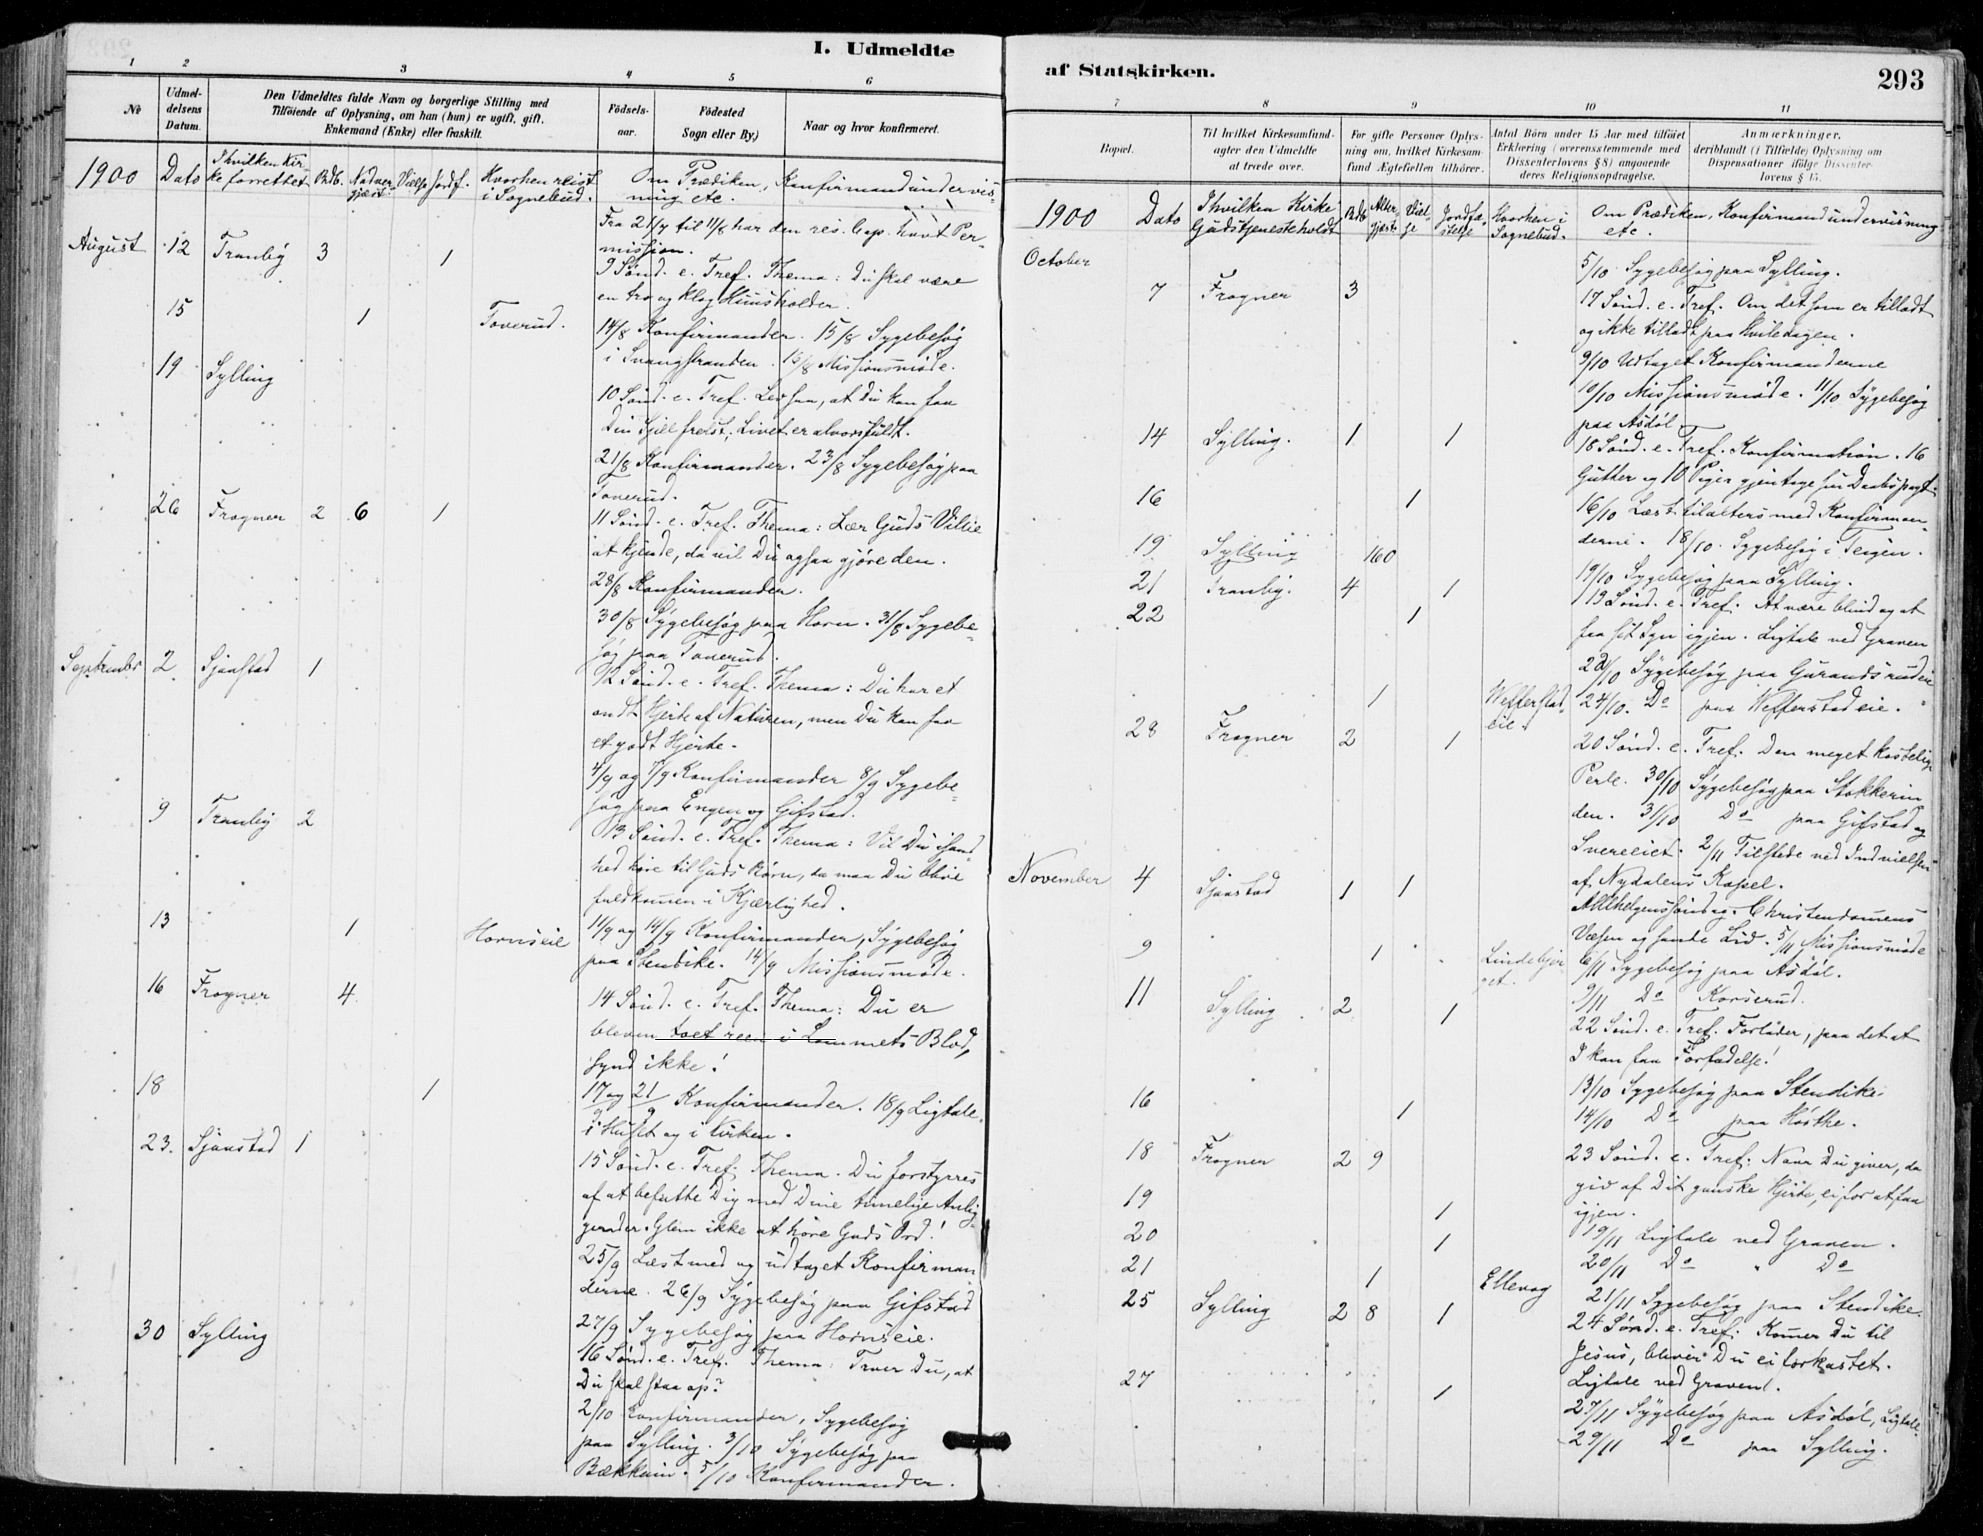 I. Udmeldte
1 2 3 4 5 6
No
Udmel-
delsens
Datum.
Den Udmeldtes fulde Navn og borgerlige Stilling med
Tilföiende af Oplysning, om han (hun) er ugift, gift,
Enkemand (Enke) eller fraskilt.
Födsels-
aar.
Födested
Sogn eller By)
Naar og hvor konfirmeret.
1900 Dato
I hvilken Kir-
ke forrettet
Brdb.
Nadver-
gjæst
Vielse Jordf.
Hvorhen reist
i Sognebud.
Om Prædiken, Konfirmandundervis-
ning etc.
Fra 21/7 til 11/8 har den res. Cap. havt Per-
mission.
August 12 Tranby 3 1
9 Sönd. e. Tref. Thema: Du skal være
en tro og klog Huusholder.
15 1 Toverud.
14/8 Konfirmander. 15/8 Sygebesög
i Svangstranden. 15/8 Missionsmöde.
19 Sylling
10 Sönd. e. Tref. Lev saa, at Du kan faa
Din Sjæl frelst. Livet er alvorsfuldt.
21/8 Konfirmander. 23/8 Sygebesög paa
Toverud.
26 Frogner 2 6 1
11 Sönd. e. Tref. Thema: Lær Guds Villie
at kjende, da vil Du ogsaa gjöre den.
28/8 Konfirmander.
30/8 Sygebesög paa Horn. 31/8 Sygebe-
sög paa Toverud.
September 2 Sjaastad 1
12 Sönd. e. Tref. Thema: Du har et
ondt Hjerte af Naturen, men Du kan faa
et godt Hjerte.
4/9 og 7/9 Konfirmander 8/9 Sygebe-
sög paa Engen og Gifstad.
9 Tranby 2
13 Sönd. e. Tref. Thema: Vil Du i Sand-
hed höre til Guds Börn, da maa Du blive
fuldkommen i Kjærlighed.
13 1 Hornseie
11/9 og 14/9 Konfirmander, Sygebesög
paa Stendike. 14/9 Missionsmöde.
16 Frogner 4
14 Sönd. e. Tref. Thema: Du er
bleven toet reen i Lammets Blod,
synd ikke!
18 1
17/9 og 21/9 Konfirmander. 18/9 Ligtale
i Huset og i Kirken.
23. Sjaastad 1
15 Sönd. e. Tref. Thema. Du forstyrres
af at befatte Dig med Dine timelige Anlig-
gender. Glem ikke at höre Guds Ord!
25/9 Læst med og udtaget Konfirman
derne. 26/9 Sygebesög paa Gifstad
27/9 Sygebesög paa Hornseie.
30 Sylling
16 Sönd. e. Tref. Thema: Troer Du, at
Du skal staa op?
2/10 Konfirmander, Sygebesög
paa Sylling. 3/10 Sygebesög paa
5/10 Konfirmander.
af Statskirken.
293
7 8 9 10 11
Bopæl.
Til hvilket Kirkesamfund-
agter den Udmeldte
at træde over.
For gifte Personer Oplys-
ning om, hvilket Kirkesam-
fund Ægtefællen tilhörer.
Antal Börn under 15 Aar med tilföiet
Erklæring (overensstemmende med
Dissenterlovens § 8) angaaende
deres Religionsopdragelse.
Anmærkninger,
deriblandt (i Tilfælde) Oplysning om
Dispensationer ifölge Dissenter-
lovens § 15.
1900 Dato
I hvilken Kirke
Gudstjeneste holdt
Brdb
Alter-
gjæste
Viel-
se
Jordfæ
stelse
Hvorhen i
Sognebud.
Om Prædiken, Konfirmandundervisning
etc.
October
5/10 Sygebesög paa Sylling.
7 Frogner 3
17 Sönd. e. Tref. Om det som er tilladt
og ikke tilladt paa Hviledagen.
9/10 Udtaget Konfirmanderne
10/10 Missionsmöde. 11/10 Sygebesög
paa Asdöl
14 Sylling. 1 1
18 Sönd. e. Tref. Konfirmation. 16
Gutter og 10 Piger gjentage sin Daabspagt.
16 1
16/10 Læst til alters med Konfirman-
derne. 18/10. Sygebesög i Teigen.
19 Sylling 160
19/10 Sygebesög paa Sylling.
21 Tranby. 4 1
19 Sönd. e. Tref. At være blind og at
22 1
faa sit Syn igjen. Ligtale ved Graven
Sygebesög paa
1
24/10. Do paa
28 Frogner 2 1
20 Sönd. e. Tref. Den meget kostelige
Perle. 30/10 Sygebesög paa Stokkerin
den. 31/10 Do paa Gifstad og
Svereeiet. 2/11 Tilstede ved Indvielsen
af Nydalens Kapel.
November 4 Sjaastad 1 1
Allehelgenssöndag. Christendommens
Væsen og sande Liv. 5/11 Missionsmöde
9 1
6/11 Sygebesög paa Asdöl.
9/11 Do Korserud.
11 Sylling 2 1
22 Sönd. e. Tref. Forlader, paa det at
I kan faa Forladelse!
13/10 Sygebesög paa Stendike.
16 1
14/10 Do paa Hösthe.
18 Frogner 2 9
23 Sönd. e. Tref: Naar Du giver, da
giv af Dit ganske Hjerte, ei for at faa
igjen.
19 1
19/11 Ligtale ved Graven.
20 1
20/11 Do " Do
21 1 Ellevog
21/11 Sygebesög paa Stendike
25 Sylling 2 8 1
24 Sönd. e. Tref: Kommer Du til
Jesus, bliver Du ei forkastet.
Ligtale ved Graven.
27 1
27/11 Sygebesög paa Asdöl, Ligtale
29/11 Do paa Sylling.